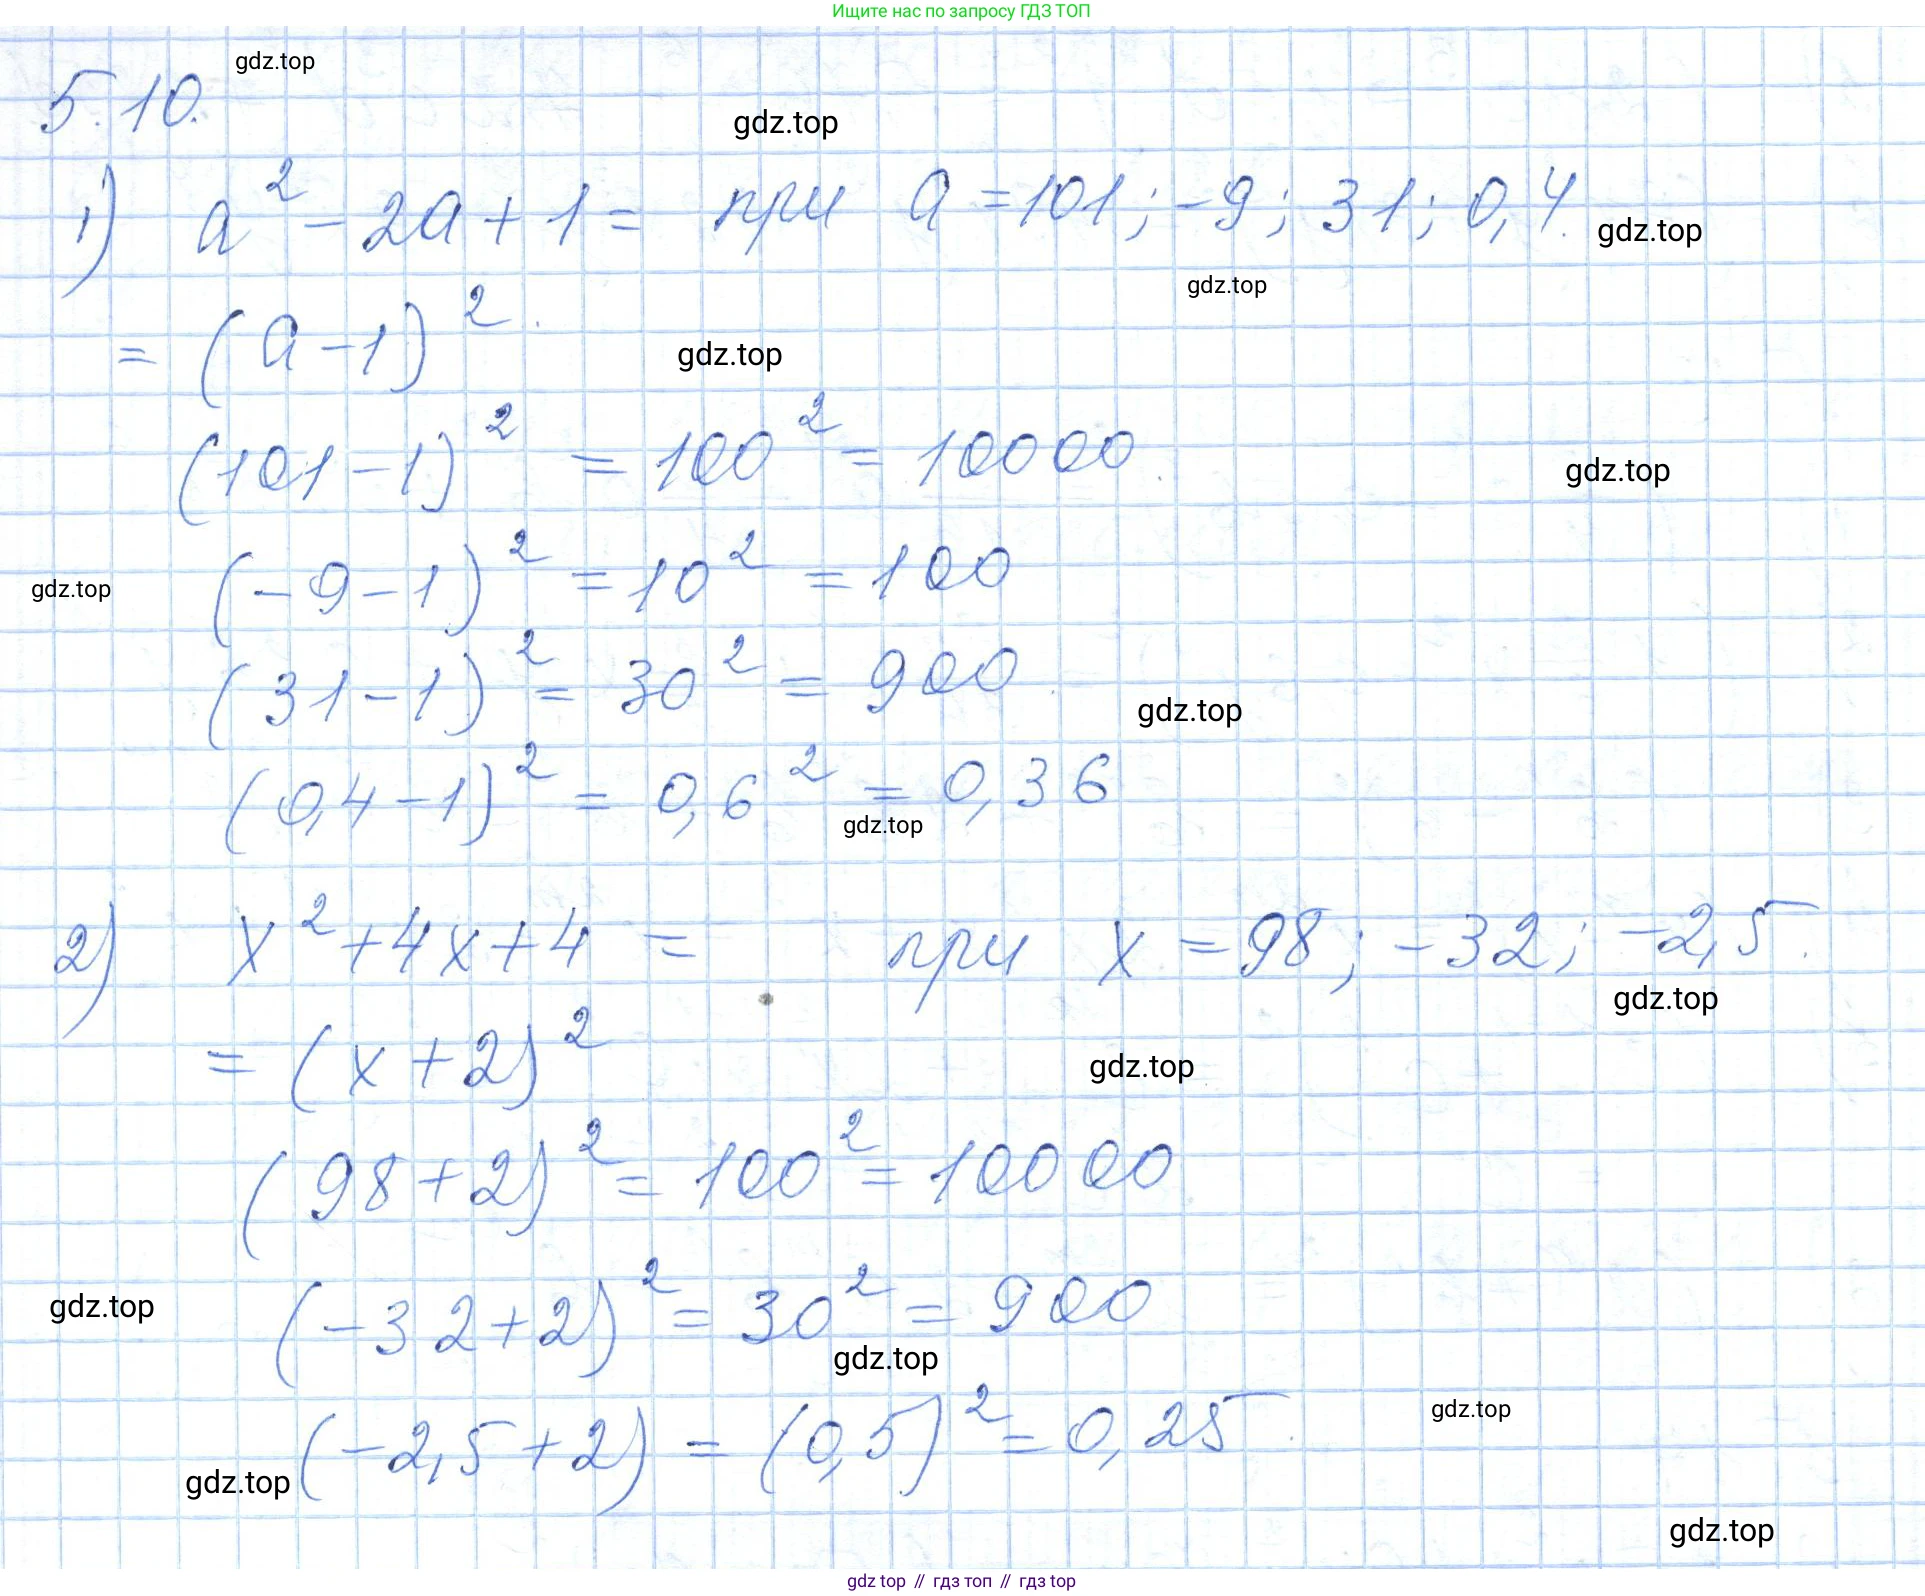 Ищите нас по запросу ГДЗ ТОП
gdz.top
5.10.
gdz.top
1) a² - 2a + 1 = при a = 101; -9; 31; 0,4.
gdz.top
gdz.top
= (a - 1)².
gdz.top
(101 - 1)² = 100² = 10000
gdz.top
(-9 - 1)² = 10² = 100
gdz.top
(31 - 1)² = 30² = 900
gdz.top
(0,4 - 1)² = 0,6² = 0,36
gdz.top
2) x² + 4x + 4 = при x = 98; -32; -2,5.
gdz.top
= (x + 2)²
gdz.top
(98 + 2)² = 100² = 10000
(-32 + 2)² = 30² = 900
gdz.top
gdz.top
gdz.top
(-2,5 + 2) = (0,5)² = 0,25
gdz.top
gdz.top
gdz.top // гдз топ // гдз top